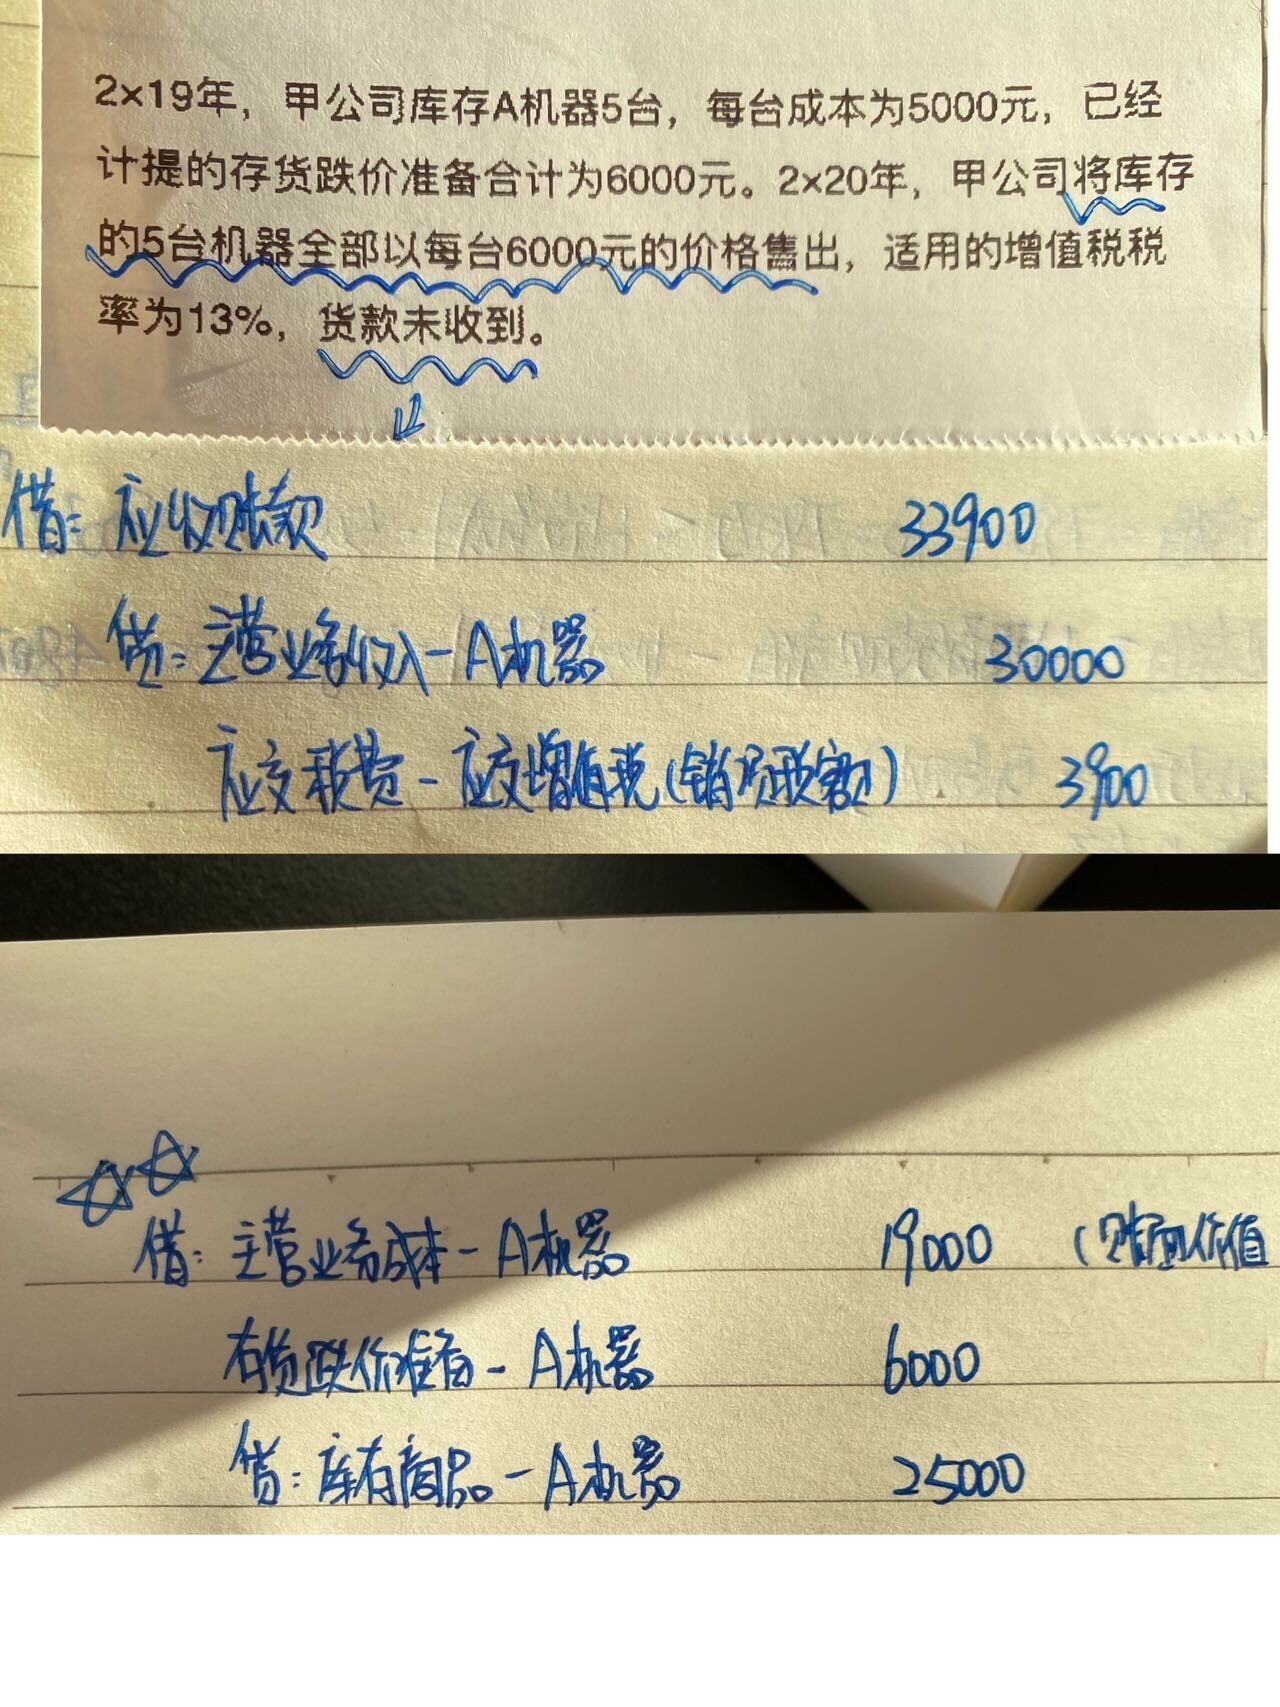 2×19年，甲公司库存A机器5台，每台成本为5000元，已经
计提的存货跌价准备合计为6000元。2×20年，甲公司将库存
的5台机器全部以每台6000元的价格售出，适用的增值税税
率为13%，货款未收到。
借：应收账款 33900
贷：主营业务收入－A机器 30000
应交税费－应交增值税（销项税额） 3900
借：主营业务成本－A机器 19000 （账面价值
存货跌价准备－A机器 6000
贷：库存商品－A机器 25000